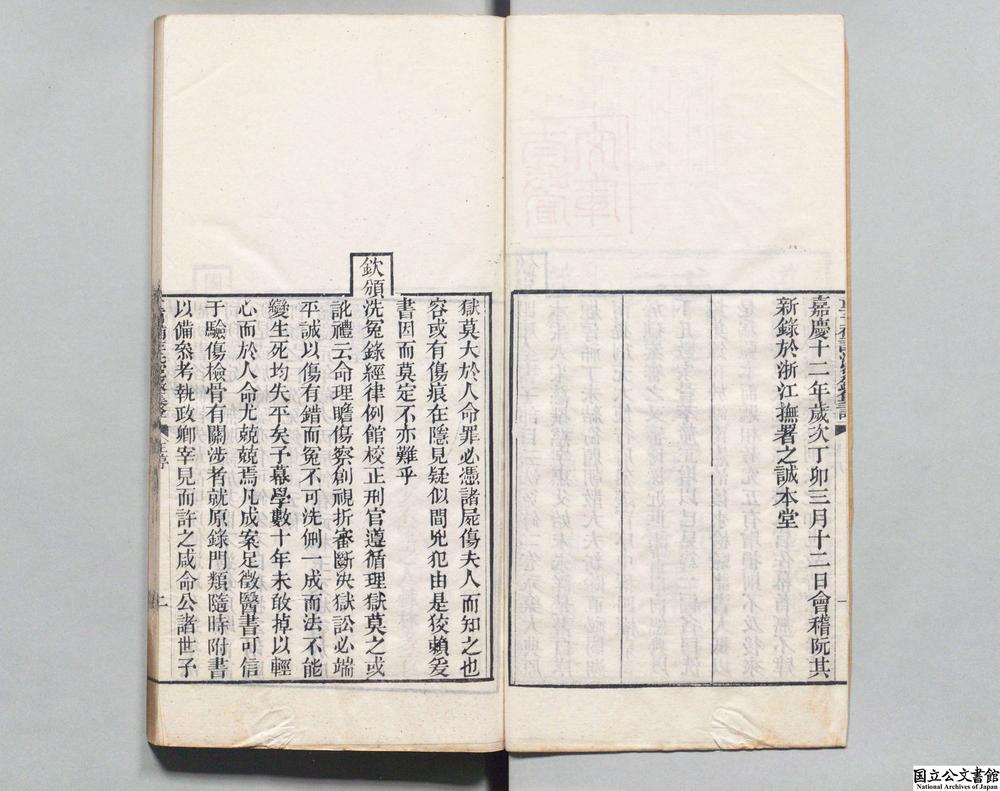 嘉慶十二年歲次丁卯三月十二日會稽阮其
新錄於浙江撫署之誠本堂
獄莫大於人命罪必憑諸屍傷夫人而知之也
容或有傷痕在隱見疑似間兇犯由是狡賴爰
書因而莫定不亦難乎
欽頒洗冤錄經律例館校正刑官遵循理獄莫之或
訛禮云命理瞻傷察創視折審斷決獄訟必端
平誠以傷有錯而冤不可洗侀一成而法不能
變生死均失平矣予幕學數十年未敢掉以輕
心而於人命尤兢兢焉凡成案足徵醫書可信
于驗傷檢骨有關涉者就原錄門類隨時附書
以備參考執政卿宰見而許之咸命公諸世予
国立公文書館
National Archives of Japan